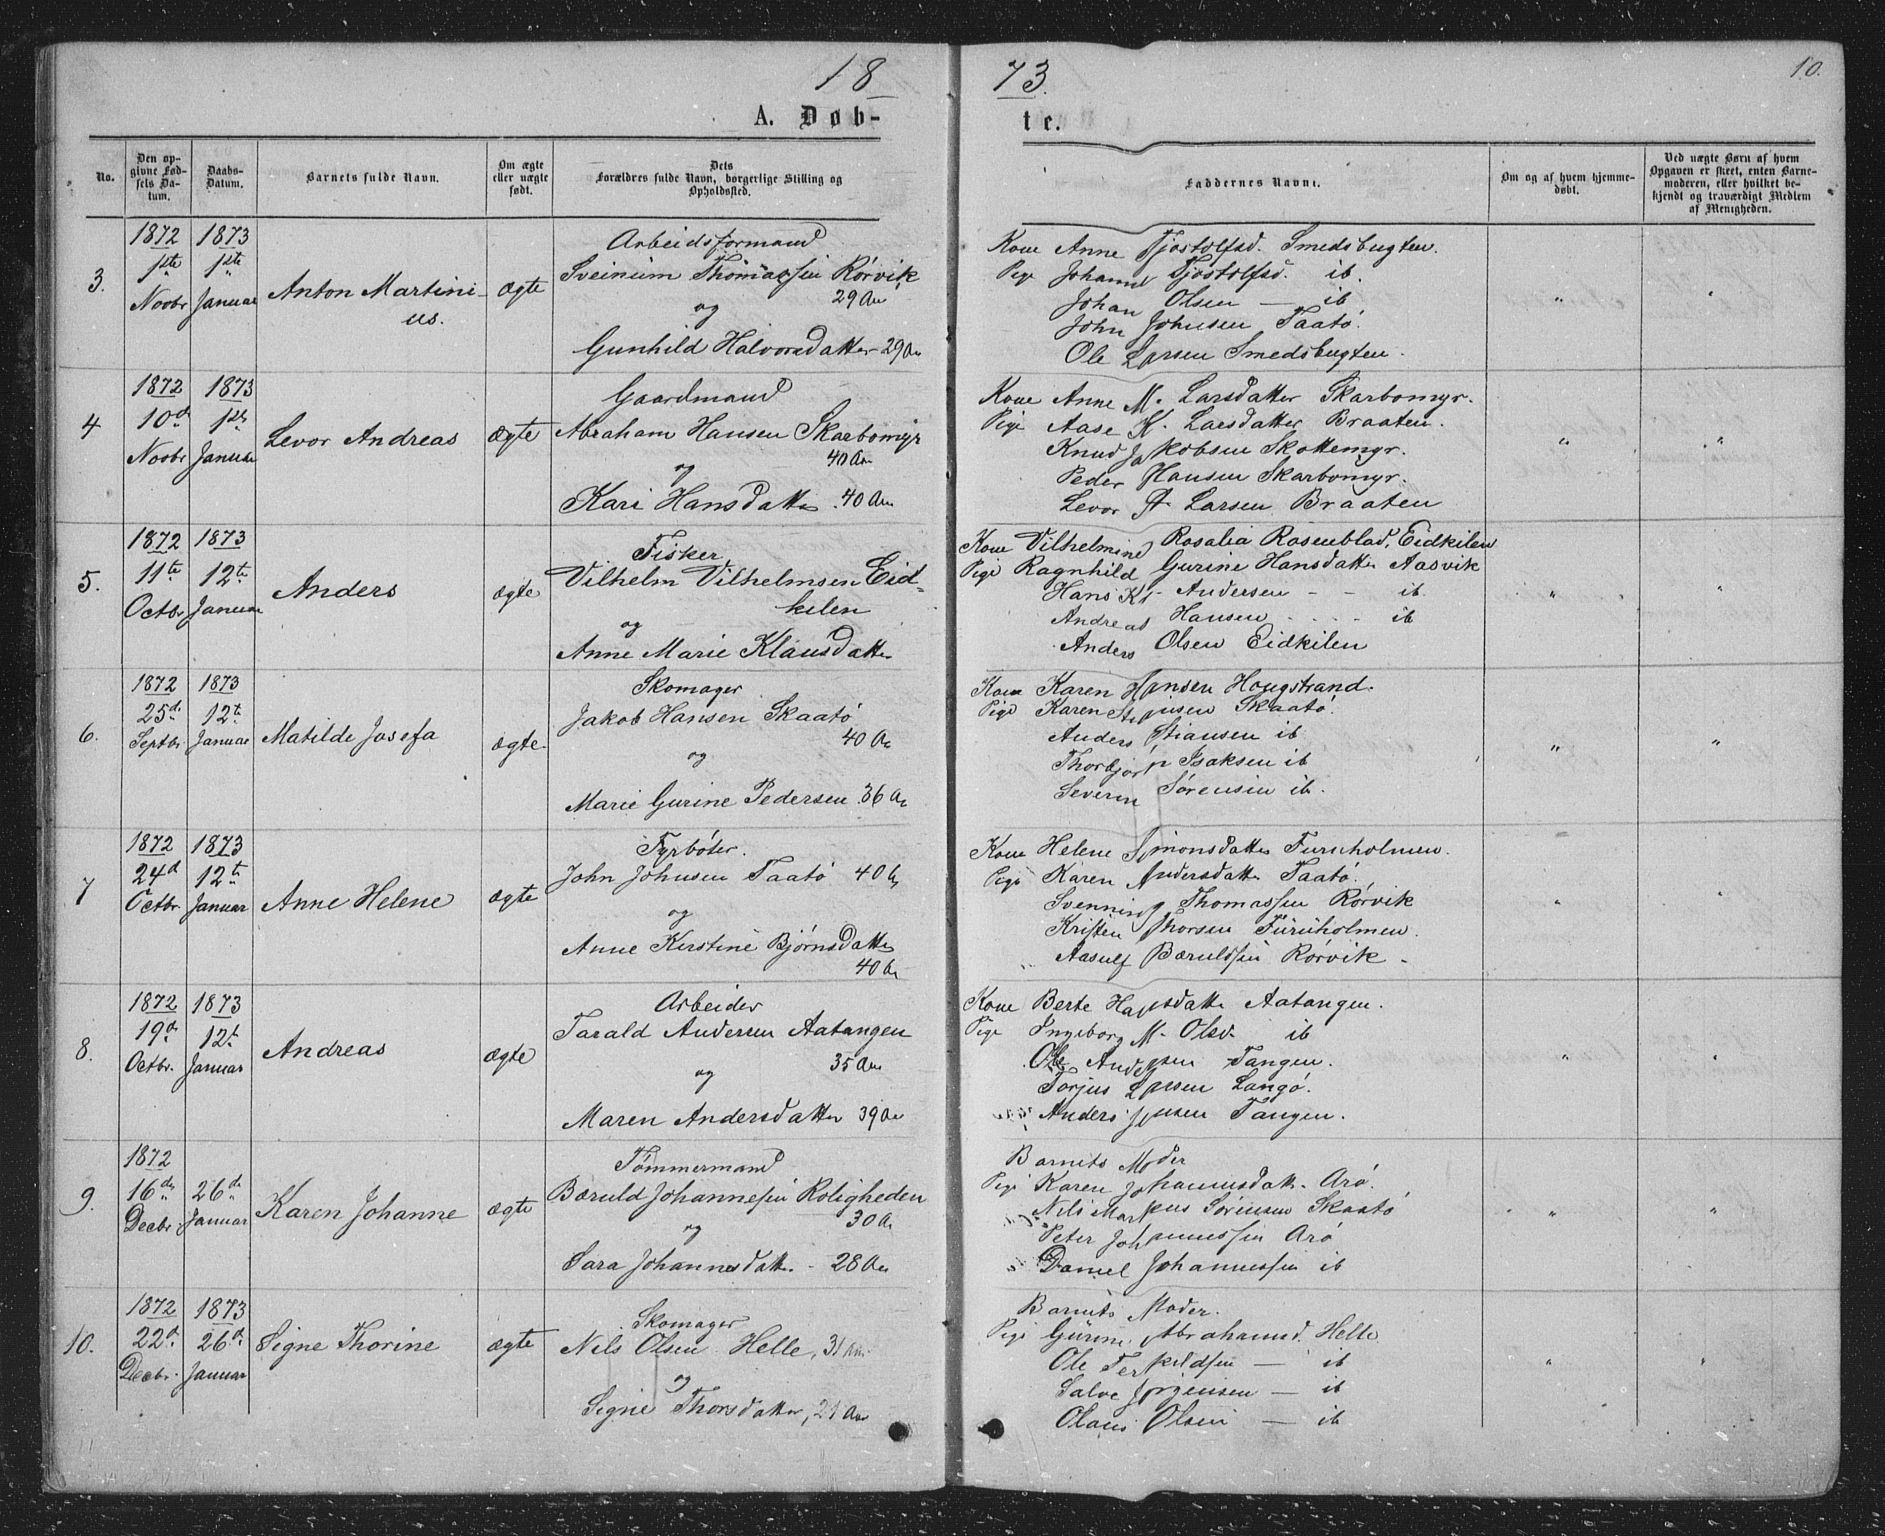 18
A. Døb-
No.
Den op-
givne Fød-
sels Da-
tum.
Daabs-
Datum.
Barnets fulde Navn.
Om ægte
eller uægte
født.
Dets
Forældres fulde Navn, borgerlige Stilling og
Opholdssted.
3.
1872
1ste
Novbr
1873
1ste
Januar
Anton Martini-
us.
ægte
Arbeidsformand
Sveinum Thomassen Rørvik
29 Aar
og
Gunhild Halvorsdatter 29 Aar
4
1872
10d
Novbr
1873
1ste
Januar
Levor Andreas
ægte
Gaardmand
Abraham Hansen Skarbomyr
40 Aar
og
Kari Hansdatter 40 Aar
5.
1872
11te
Octbr
1873
12te
Januar
Anders
ægte
Fisker
Vilhelm Vilhelmsen Eid-
kilen
og
Anne Marie Klausdatter
6.
1872
25de
Septbr
1873
12te
Januar
Matilde Josefa
ægte.
Skomager
Jakob Hansen Skaatø
40 Aar
og
Marie Gurine Pedersen 36 Aar
7
1872
24d
Octbr.
1873
12te
Januar
Anne Helene
ægte
Fyrbøter.
John Johnsen Taatø 40 Aar
og
Anne Kirstine Bjørnsdatter
40 Aar
8.
1872
19d
Octbr.
1873
12t
Januar
Andreas
ægte
Arbeider
Tarald Andersen Aatangen
35 Aar
og
Maren Andersdatter 39 Aar
9.
1872
16de
Decbr
26de
Januar
Karen Johanne
ægte
Tømmermand
Bæruld Johannesen Roligheden
30 Aar
og
Sara Johannesdatter 28 Aar
10.
1872
22d
Decbr.
1873
26d
Januar
Signe Thorine
ægte
Skomager
Nils Olsen Helle, 31 Aar
og
Signe Thorsdatter, 21 Aar
73.
10.
te.
Faddernes Navne.
Om og af hvem hjemme-
døbt.
Ved uægte Børn af hvem
Opgaven er skeet, enten Barne-
moderen, eller hvilket be-
kjendt og troværdigt Medlem
af Menigheden.
Kone Anne Tjostolfsd. Smedsbugten.
Pige Johanne Tjostolfsd. ib.
Johan Olsen — ib
John Johnsen Taatø.
Ole Larsen Smedsbugten.
Kone Anne M. Larsdatter Skarbomyr.
Pige Aase K. Larsdatter Braaten.
Knud Jakobsen Skottemyr.
Peder Hansen Skarbomyr.
Levor A. Larsen Braaten
Kone Vilhelmine Rosalia Rosenblad, Eidkilen
Pige Ragnhild Gurine Hansdatter Aasvik
Hans Kr. Andersen - - ib
Andreas Hansen - - - - ib
Anders Olsen Eidkilen
Kone Karen Hansen Hougstrand.
Pige Karen Stiansen Skaatø.
Anders Stiansen ib
Thorbjørn Isaksen ib
Severin Sørensen ib.
Kone Helene Simonsdatter Furuholmen.
Pige Karen Andersdatter Taatø.
Svenning Thomassen Rørvik
Kristen Thorsen Furuholmen.
Aasulf Bæruldsen Rørvik -
Kone Berte Hansdatter Aatangen.
Pige Ingeborg M. Olsd. ib
Ole Andersen Tangen.
Torjus Larsen Langø.
Anders Jensen Tangen.
Barnets Moder
Pige Karen Johannesdatt. Arø.
Nils Markus Sørensen Skaatø
Peter Johannessen Arø
Daniel Johannessen ib
Barnets Moder.
Pige Gurine Abrahamsd. Helle
Ole Terkildsen — ib
Salve Jørgensen — ib
Olaus Olsen — ib